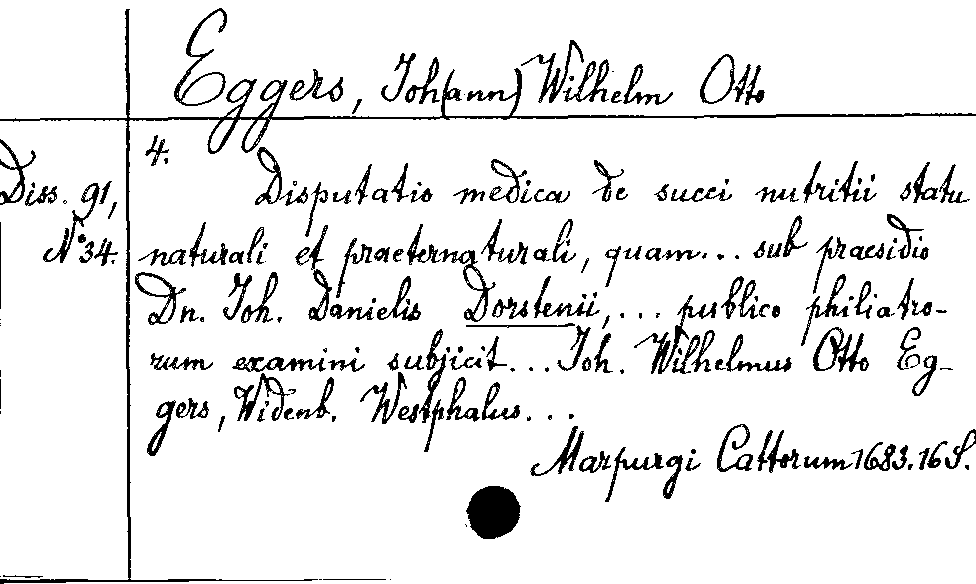 Eggers, Joh(ann) Wilhelm Otto
4.
Diss. 91,
N° 34.
Disputatio medica de succi nutritii statu
naturali et praeternaturali, quam... sub praesidio
Dn. Joh. Danielis Dorstenii,... publico philiatro-
rum examini subjicit... Joh. Wilhelmus Otto Eg-
gers, Widenb. Westphalus...
Marpurgi Cattorum 1683. 16 S.